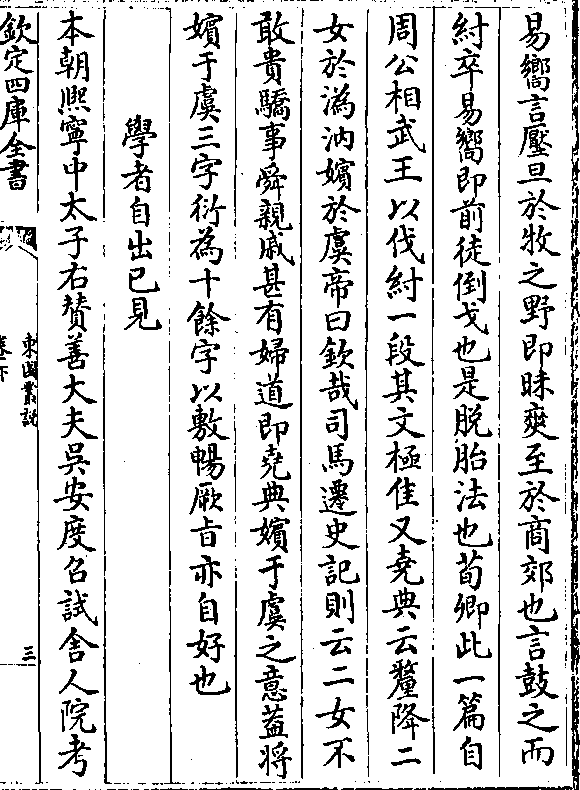 易嚮言壓旦於牧之野即昧爽至於商郊也言鼓之而
紂卒易嚮即前徒倒戈也是脱胎法也荀卿此一篇自
周公相武王以伐紂一段其文極佳又堯典云釐降二
女於溈汭嬪於虞帝曰欽哉司馬遷史記則云二女不
敢貴驕事舜親戚甚有婦道即堯典嬪于虞之意葢將
嬪于虞三字衍為十餘字以敷暢厥旨亦自好也
學者自出已見
本朝熈寧中太子右賛善大夫吳安度召試舍人院考
欽定四庫全書
東園叢説
卷下
三